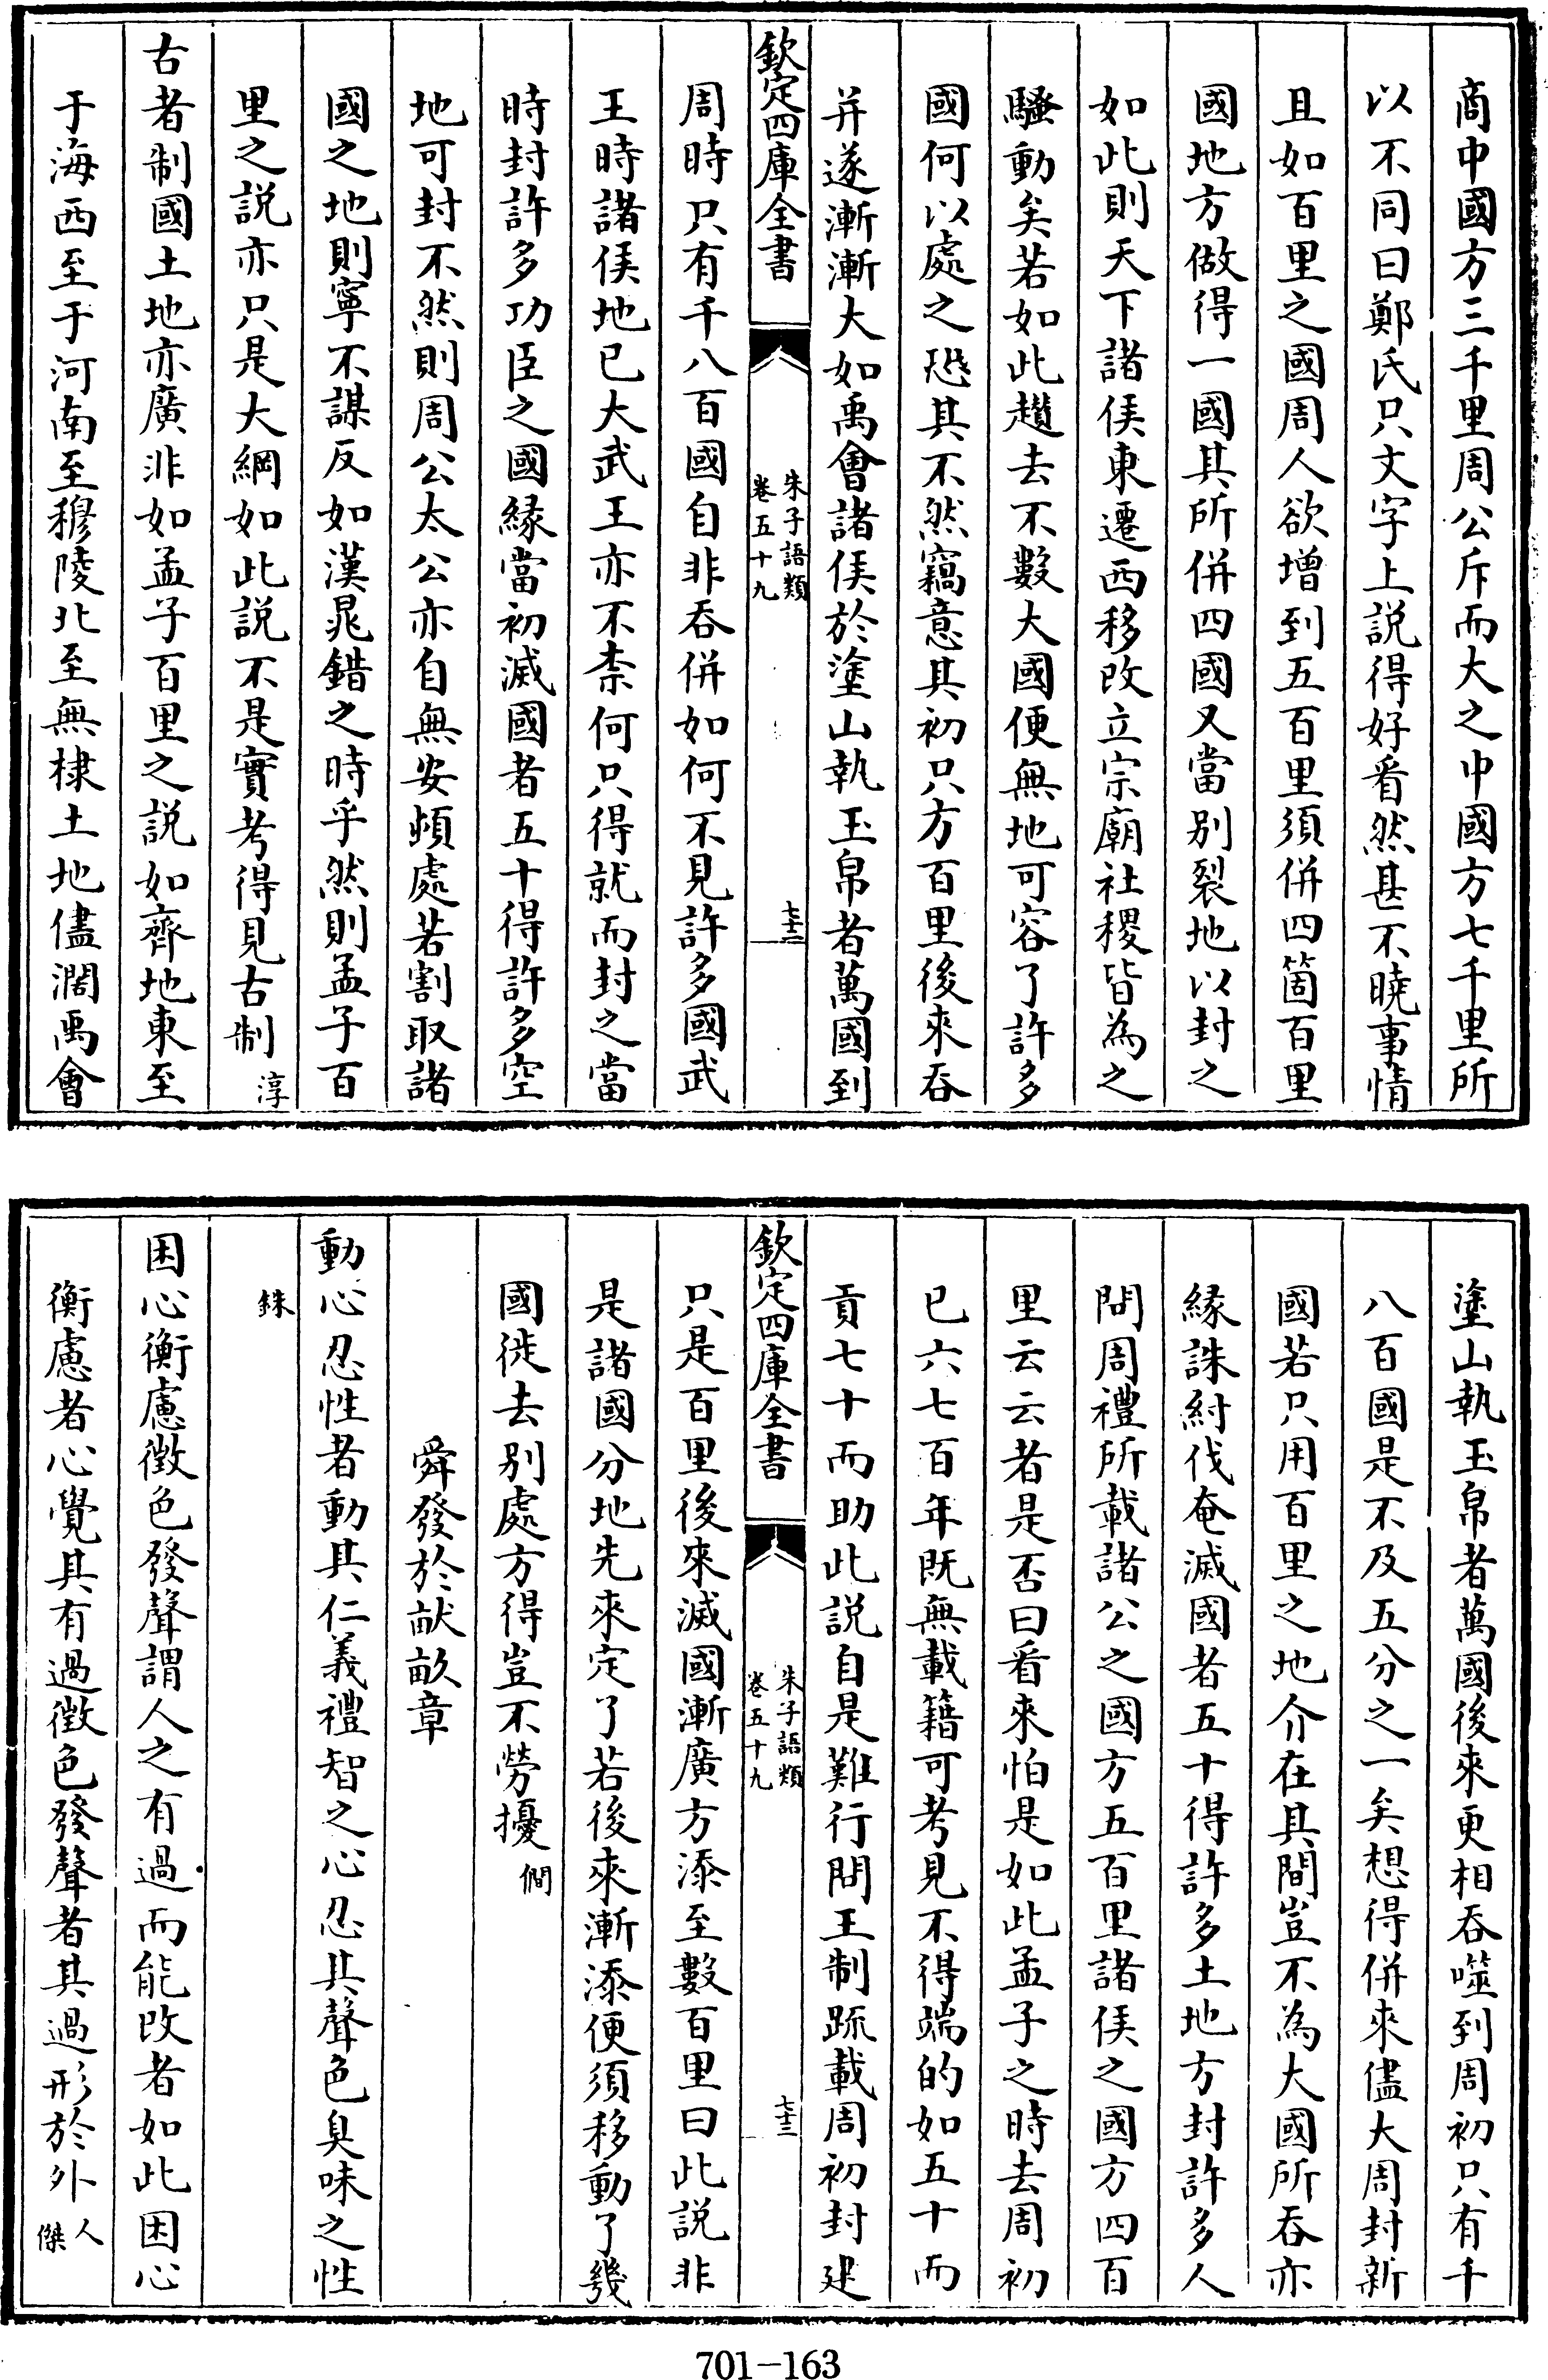 商中國方三千里周公斥而大之中國方七千里所
以不同曰鄭氏只文字上説得好看然甚不曉事情
且如百里之國周人欲增到五百里須併四箇百里
國地方做得一國其所併四國又當别裂地以封之
如此則天下諸侯東遷西移改立宗廟社稷皆為之
騷動矣若如此趲去不數大國便無地可容了許多
國何以處之恐其不然竊意其初只方百里後來吞
并遂漸漸大如禹會諸侯於塗山執玉帛者萬國到
欽定四庫全書
朱子語類
卷五十九
七十二
周時只有千八百國自非吞併如何不見許多國武
王時諸侯地已大武王亦不柰何只得就而封之當
時封許多功臣之國緣當初滅國者五十得許多空
地可封不然則周公太公亦自無安頓處若割取諸
國之地則寧不謀反如漢晁錯之時乎然則孟子百
里之説亦只是大綱如此説不是實考得見古制 淳
古者制國土地亦廣非如孟子百里之説如齊地東至
于海西至于河南至穆陵北至無棣土地儘濶禹會
塗山執玉帛者萬國後來更相吞噬到周初只有千
八百國是不及五分之一矣想得併來儘大周封新
國若只用百里之地介在其間豈不為大國所吞亦
緣誅紂伐奄滅國者五十得許多土地方封許多人
問周禮所載諸公之國方五百里諸侯之國方四百
里云云者是否曰看來怕是如此孟子之時去周初
已六七百年既無載籍可考見不得端的如五十而
貢七十而助此説自是難行問王制疏載周初封建
欽定四庫全書
朱子語類
卷五十九
七十三
只是百里後來滅國漸廣方添至數百里曰此説非
是諸國分地先來定了若後來漸添便須移動了幾
國徙去别處方得豈不勞擾 僩
舜發於畎畝章
動心忍性者動其仁義禮智之心忍其聲色臭味之性
銖
困心衡慮徵色發聲謂人之有過而能改者如此困心
衡慮者心覺其有過徵色發聲者其過形於外 人傑
701-163